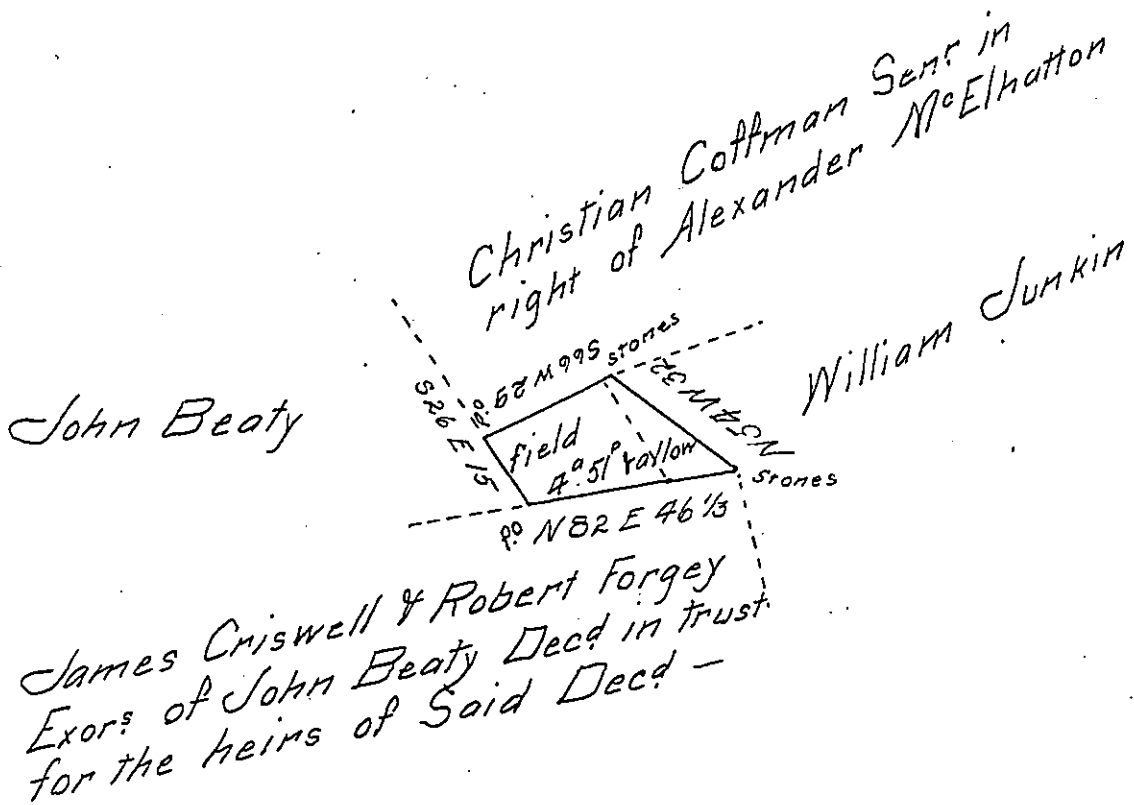 Christian Coffman Senr. in
right of Alexander McElhatton
William Junkin
John Beaty
S66W29
stones
N54W32
stones
S26E15
po
field
4a.51p
N82E46⅓
po
James Criswell & Robert Forgey
Exors. of John Beaty Decd. in trust
for the heirs of Said Decd. —